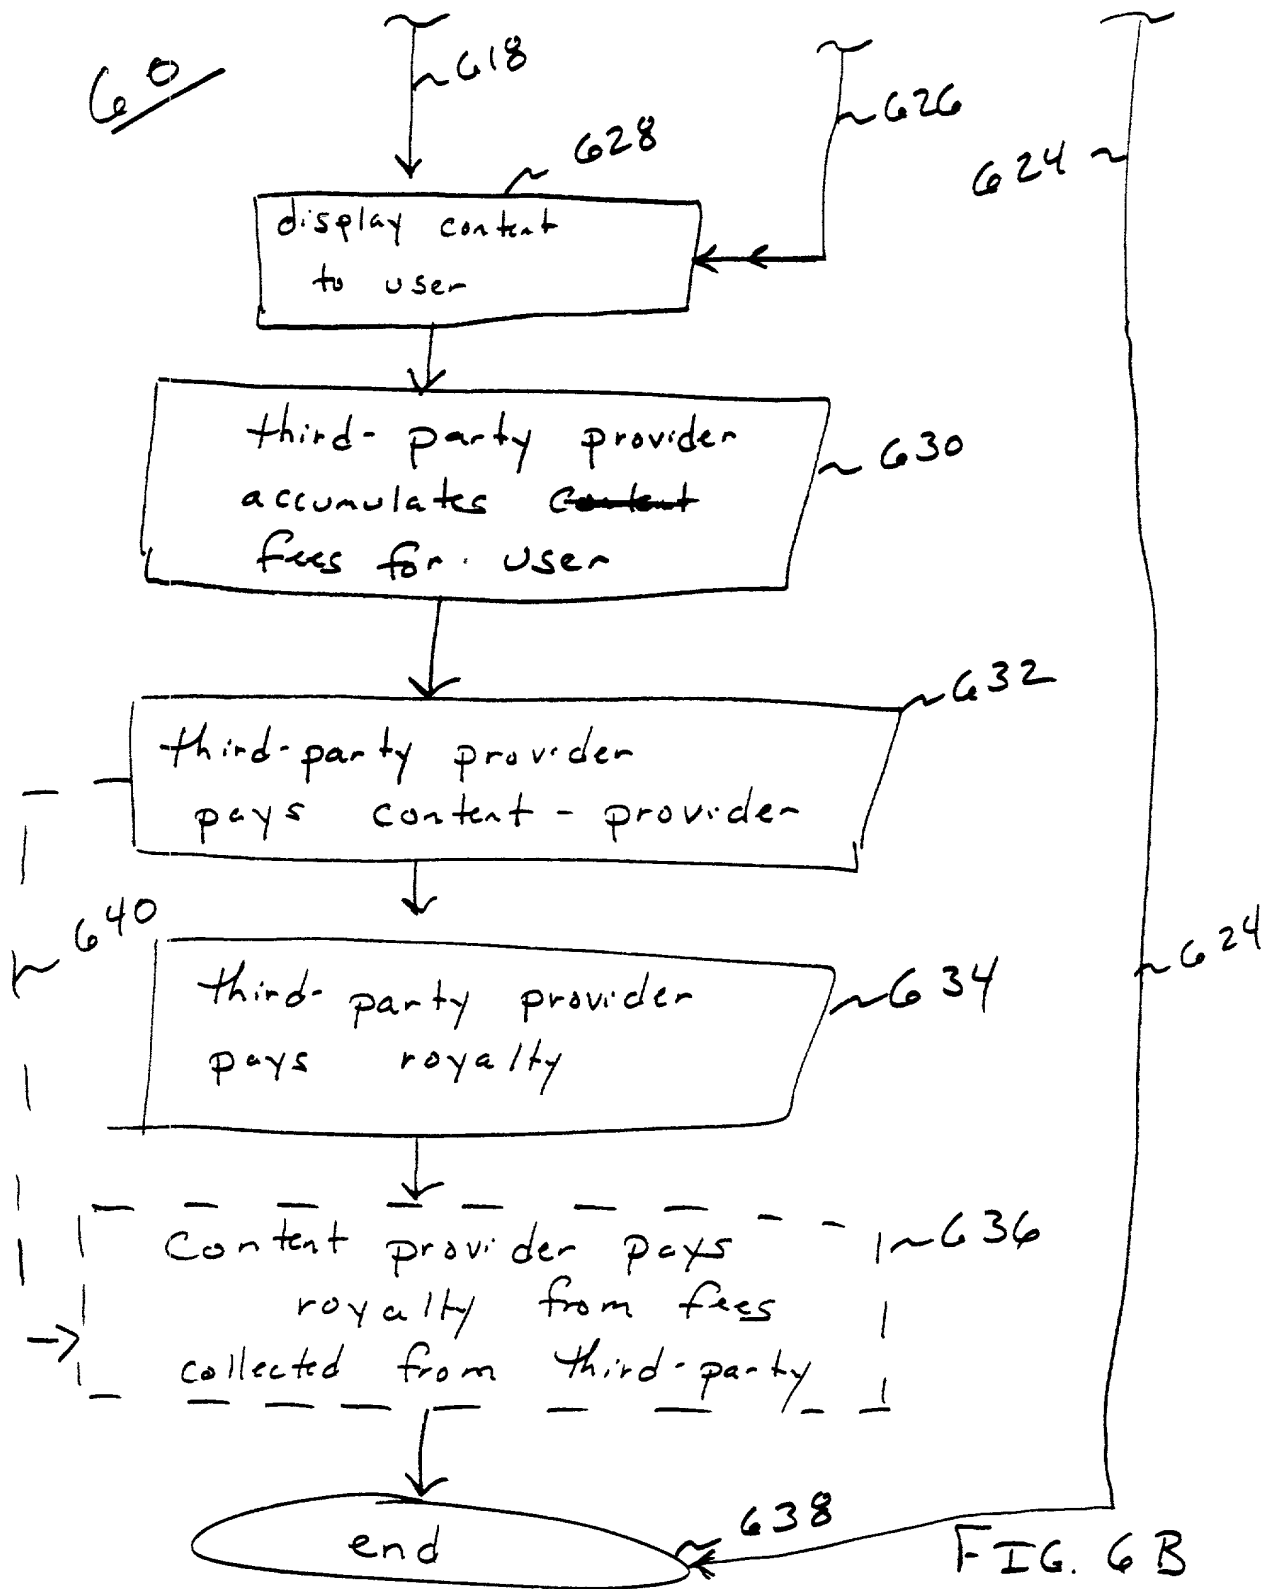 60
618
626
628
624
display content
to user
third-party provider
accumulates content
fees for user
630
632
third-party provider
pays content-provider
640
624
third-party provider
pays royalty
634
636
Content provider pays
royalty from fees
collected from third-party
638
end
FIG. 6B